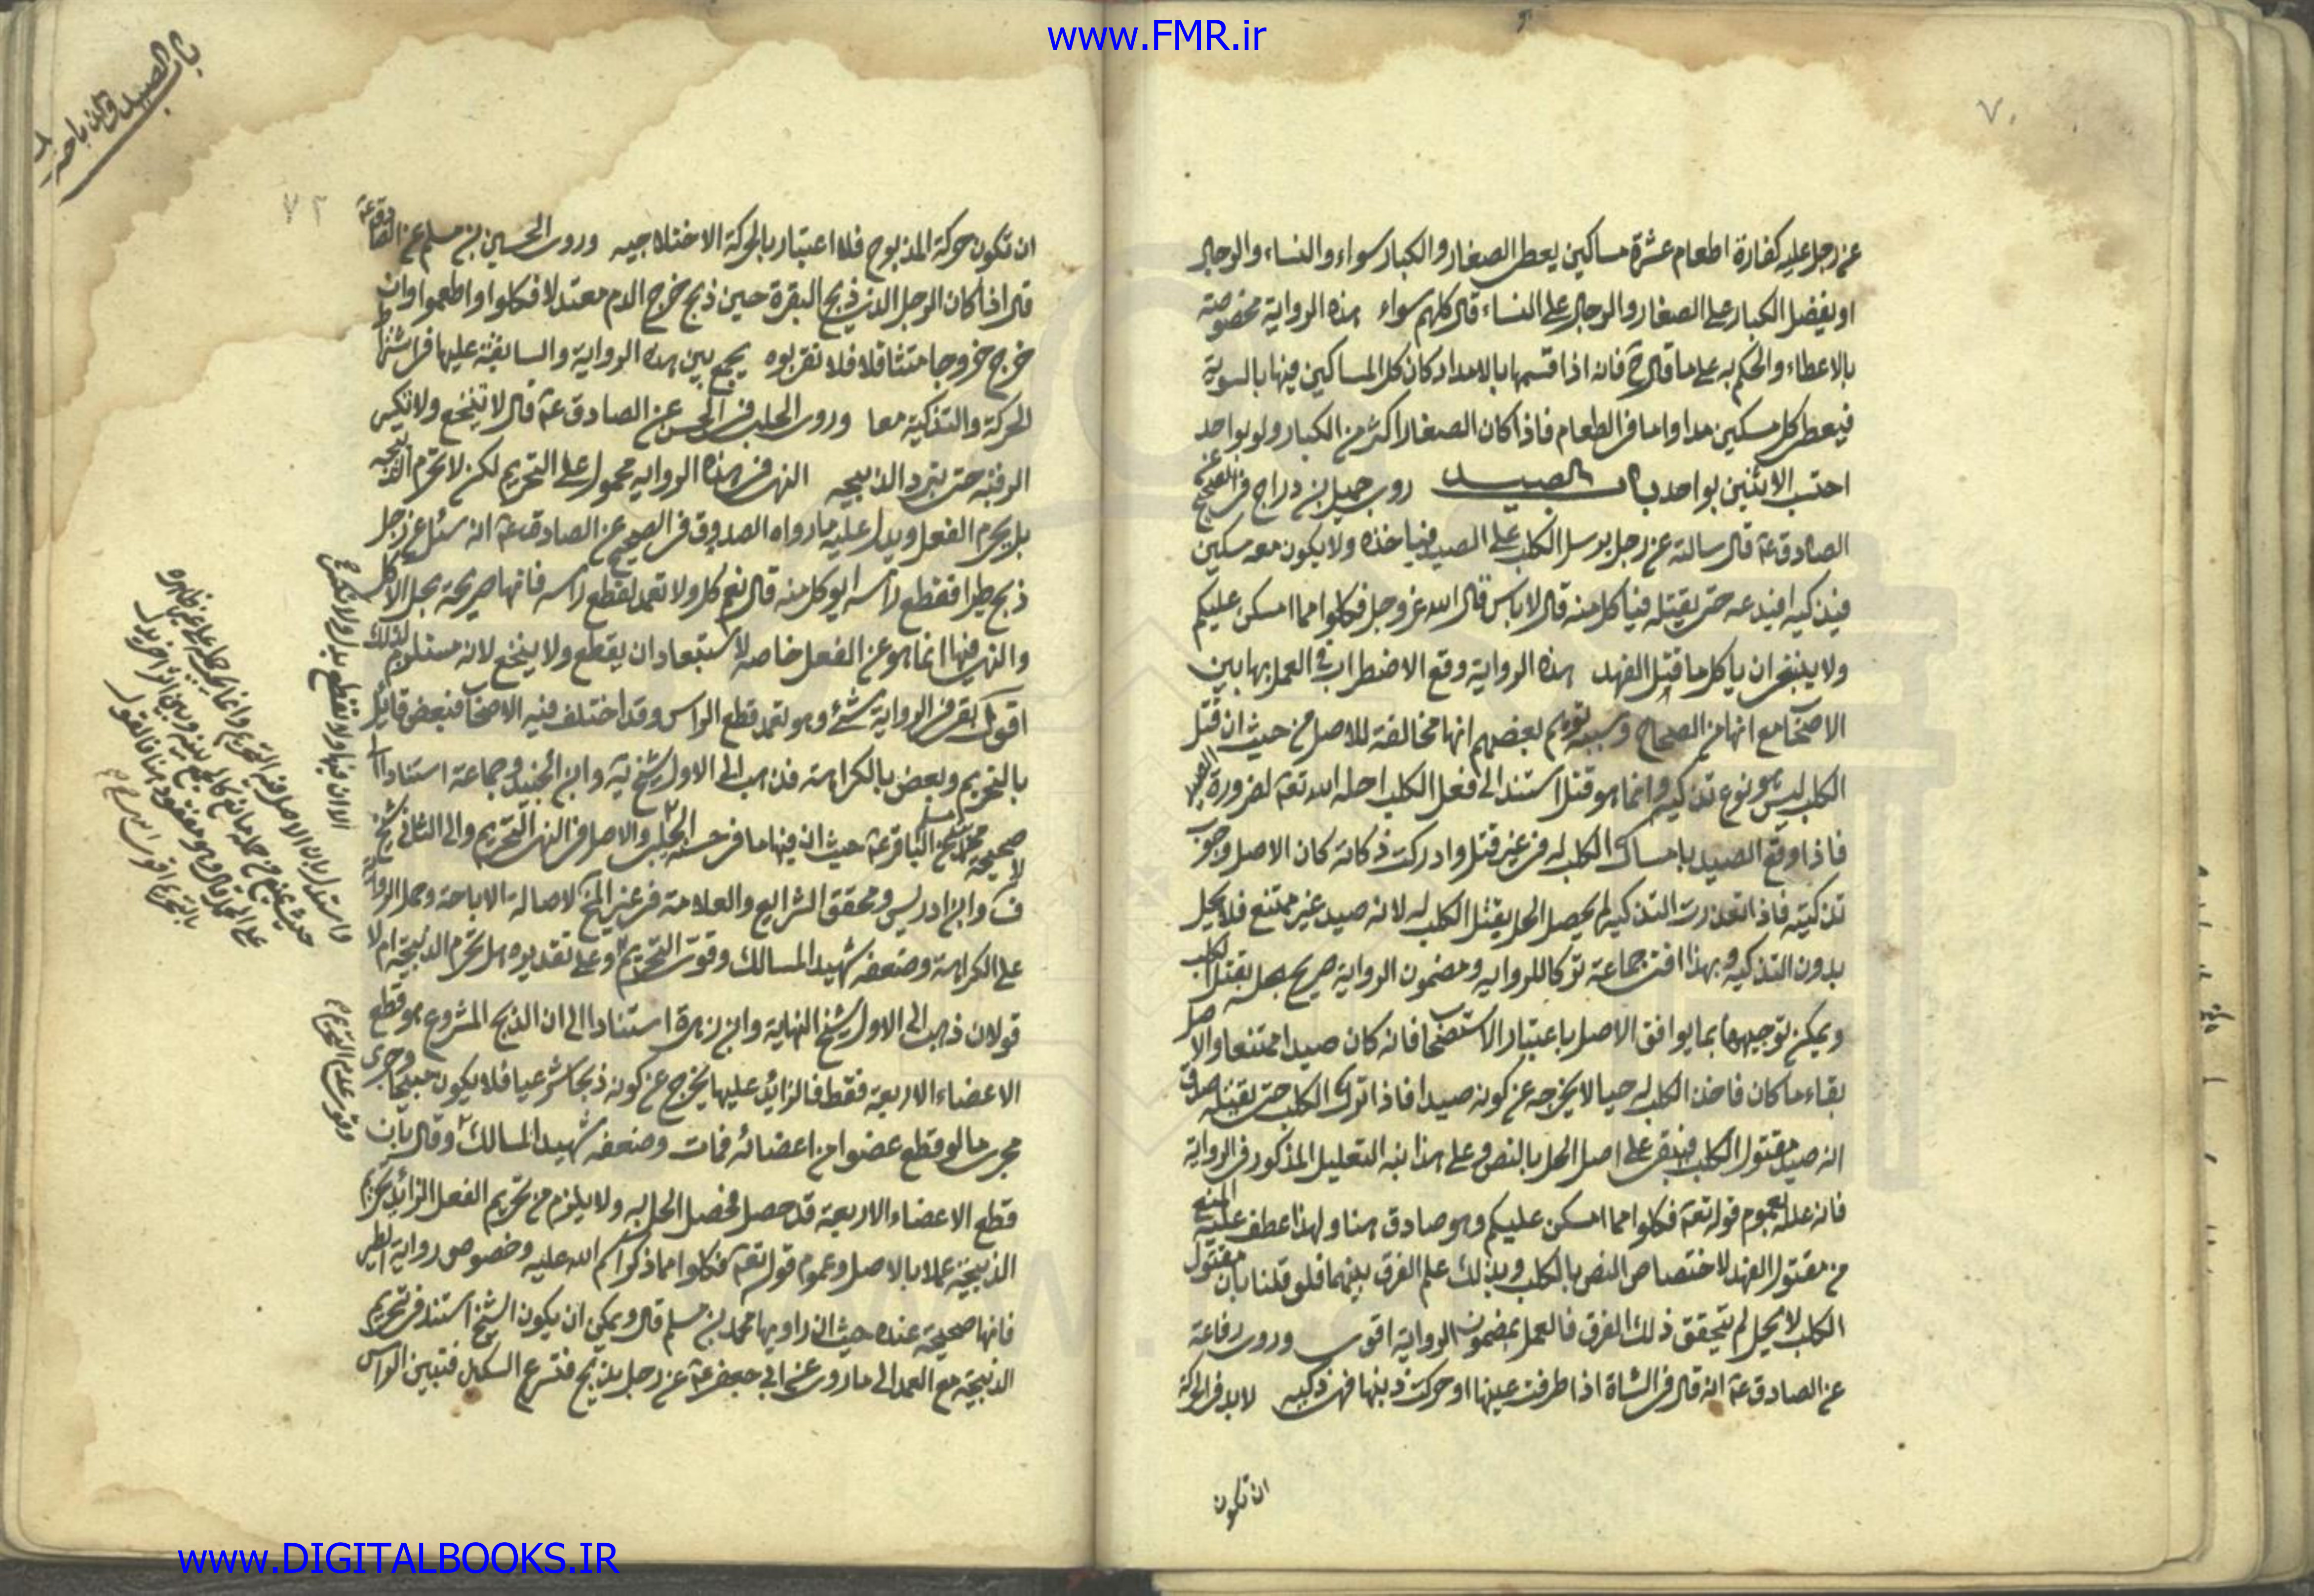 www.FMR.ir
٧٠
عن رجل عليه كفارة اطعام عشرة مساكين يعطى الصغار والكبار سواء والنساء والرجال
او يفضل الكبار على الصغار والرجال على النساء قال كلهم سواء هذه الرواية مخصوصة
بالاعطاء والحكم به على ما قال ع فانه اذا قسمها بالامداد كان كل المساكين فيها بالسوية
فيعطى كل مسكين مدا واما فى الطعام فاذا كان الصغار اكثر من الكبار ولو بواحد
احتسب الاثنين بواحد باب الصيد روى جميل بن دراج فى الصحيح عن
الصادق ع قال سالته عن رجل يرسل الكلب على الصيد فياخذه ولا يكون معه سكين
فيذكيه افيدعه حتى يقتله فياكل منه قال لا باس قال الله عز وجل فكلوا مما امسكن عليكم
ولا ينبغى ان ياكل ما قتل الفهد هذه الرواية وقع الاضطراب فى العمل بها بين
الاصحاب مع انها من الصحاح وسببه توهم بعضهم انها مخالفة للاصل من حيث ان قتل
الكلب ليس هو نوع تذكية وانما هو قتل استند الى فعل الكلب احله الله تعه لضرورة
فاذا وقع الصيد بامساك الكلب له من غير قتل وادركت ذكاته كان الاصل وجوب
تذكيته فاذا تعذرت التذكية لم يحصل الحل بقتل الكلب له لانه صيد غير ممتنع فلا يحل
بدون التذكية وبهذا افتى جماعة تركا للرواية ومضمون الرواية صريح بحل بقتل الكلب
ويمكن توجيهها بما يوافق الاصل باعتبار الاستصحاب فانه كان صيدا ممتنعا والاصل
بقاء ما كان فاخذ الكلب له حيا لا يخرجه عن كونه صيدا فاذا ترك الكلب حتى يقتله صدق
انه صيد مقتول الكلب فيبقى على اصل الحل بالنص وعلى هذا نبه التعليل المذكور فى الرواية
فانه علله بعموم قوله تعه فكلوا مما امسكن عليكم وهو صادق هنا ولهذا عطف عليه المنع
من مقتول الفهد لاختصاص النص بالكلب وبذلك علم الفرق بينهما فلو قلنا بان مقتول
الكلب لا يحل لم يتحقق ذلك الفرق فالعمل بمضمون الرواية اقوى وروى رفاعة
عن الصادق ع انه قال فى الشاة اذا طرفت عينها او حركت ذنبها فهى ذكية لا بد فى الحركة
ان تكون
باب الصيد والذباحه
٧٢
ان تكون حركة المذبوح فلا اعتبار بالحركة الاختلاجيه وروى الحسين بن مسلم عن الصادق ع
قال اذا كان الرجل الذى ذبح البقرة حين ذبح خرج الدم معتدلا فكلوا واطعموا وان
خرج خروجا متثاقلا فلا تقربوه يجمع بين هذه الرواية والسابقة عليها فى اشتراط
الحركة والتذكية معا وروى الحلبى فى الحسن عن الصادق ع قال لا تنخع ولا تكسر
الرقبة حتى تبرد الذبيحه النهى فى هذه الرواية محمول على التحريم لكن لا تحرم الذبيحه
بل يحرم الفعل ويدل عليه ما رواه الصدوق فى الصحيح عن الصادق ع انه سئل عن رجل
ذبح طيرا فقطع راسه ايوكل منه قال نعم كل ولا تعمد لقطع راسه فانها صريحة بحل الاكل
والنهى فيها انما هو عن الفعل خاصه لاستبعاد ان يقطع ولا ينخع لانه مستلزم لذلك
اقول بقى فى الرواية شئ وهو تعمد قطع الراس وقد اختلف فيه الاصحاب فبعض قائل
بالتحريم وبعض بالكراهة فذهب الى الاول شيخ يه وابن الجنيد وجماعة استنادا الى
صحيحة محمد بن مسلم عن الباقر ع حيث ان فيها ما فى حسنة الحلبى والاصل فى النهى التحريم والى الثانى شيخ
ف وابن ادريس ومحقق الشرايع والعلامة فى غير المخ لاصالة الاباحة وحمل الرواية
على الكراهة وضعفه شهيد المسالك وقوى التحريم وعلى تقديره هل تحرم الذبيحة ام لا
قولان ذهب الى الاول شيخ النهاية وابن زهرة استنادا الى ان الذبح المشروع هو قطع
الاعضاء الاربعة فقط فالزائد عليها يخرج عن كونه ذبحا شرعيا فلا يكون مبيحا وجرى
مجرى ما لو قطع عضوا من اعضائه فمات وضعفه شهيد المسالك وقال بان
قطع الاعضاء الاربعة قد حصل فحصل الحل به ولا يلزم من تحريم الفعل الزائد تحريم
الذبيحة عملا بالاصل وعموم قوله تعه فكلوا مما ذكر اسم الله عليه وخصوص رواية الطير
فانها صحيحة عنده حيث ان راويها محمد بن مسلم قال ويمكن ان يكون الشيخ استند فى تحريم
الذبيحة مع العمد الى ما روى عن ابى جعفر ع عن رجل يذبح فتسرع السكين فتبين الراس
www.DIGITALBOOKS.IR